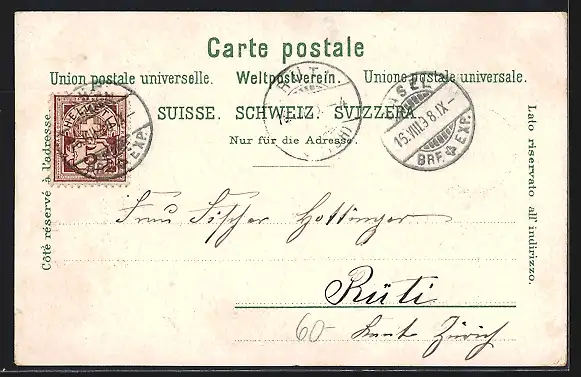 Carte postale
Union postale universelle. Weltpostverein. Unione postale universale.
SUISSE. SCHWEIZ. SVIZZERA.
Nur für die Adresse.
Côté réservé à l'adresse.
Lato riservato all' indirizzo.
BRF. EXP.
EXP.
Frau Fischer Hottinger
Rüti
60 Kant. Zürich